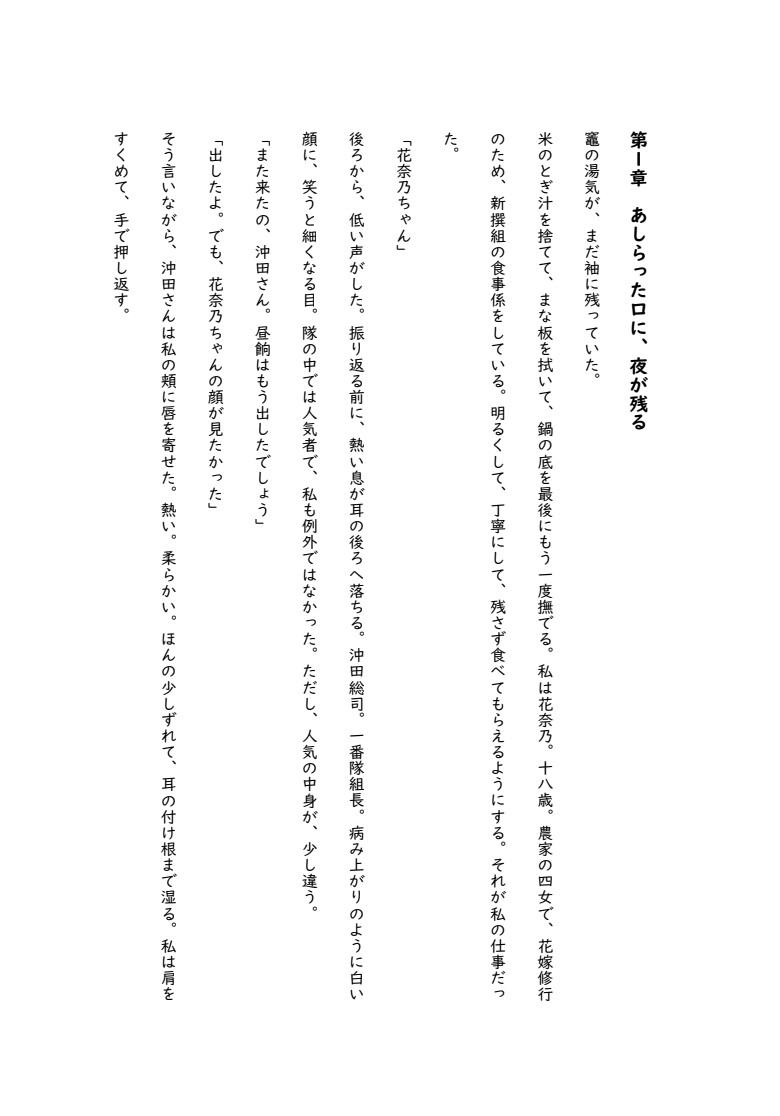 第一章　あしらった口に、夜が残る
竈の湯気が、まだ袖に残っていた。
米のとぎ汁を捨てて、まな板を拭いて、鍋の底を最後にもう一度撫でる。私は花奈乃。十八歳。農家の四女で、花嫁修行
のため、新撰組の食事係をしている。明るくして、丁寧にして、残さず食べてもらえるようにする。それが私の仕事だっ
た。
「花奈乃ちゃん」
後ろから、低い声がした。振り返る前に、熱い息が耳の後ろへ落ちる。沖田総司。一番隊組長。病み上がりのように白い
顔に、笑うと細くなる目。隊の中では人気者で、私も例外ではなかった。ただし、人気の中身が、少し違う。
「また来たの、沖田さん。昼餉はもう出したでしょう」
「出したよ。でも、花奈乃ちゃんの顔が見たかった」
そう言いながら、沖田さんは私の頬に唇を寄せた。熱い。柔らかい。ほんの少しずれて、耳の付け根まで湿る。私は肩を
すくめて、手で押し返す。